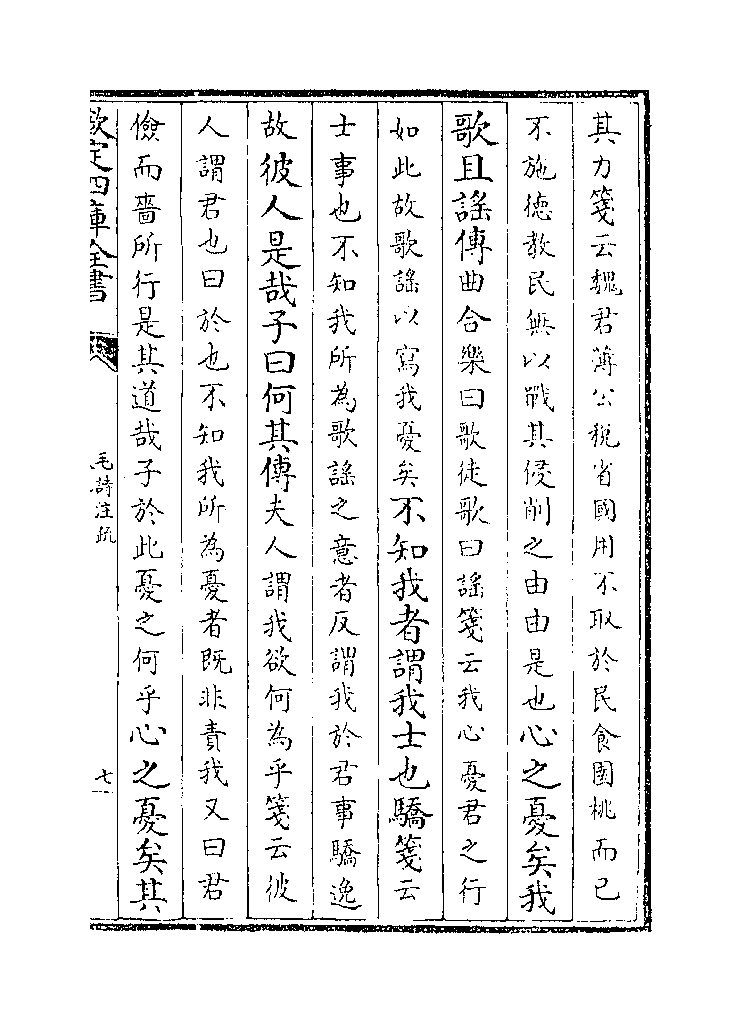 其力箋云魏君薄公稅省國用不取於民食園桃而已
不施徳教民無以戰其侵削之由由是也心之憂矣我
歌且謠傳曲合樂曰歌徒歌曰謠箋云我心憂君之行
如此故歌謠以寫我憂矣不知我者謂我士也驕箋云
士事也不知我所為歌謠之意者反謂我於君事驕逸
故彼人是哉子曰何其傳夫人謂我欲何為乎箋云彼
人謂君也曰於也不知我所為憂者既非責我又曰君
儉而嗇所行是其道哉子於此憂之何乎心之憂矣其
欽定四庫全書
毛詩注疏
七